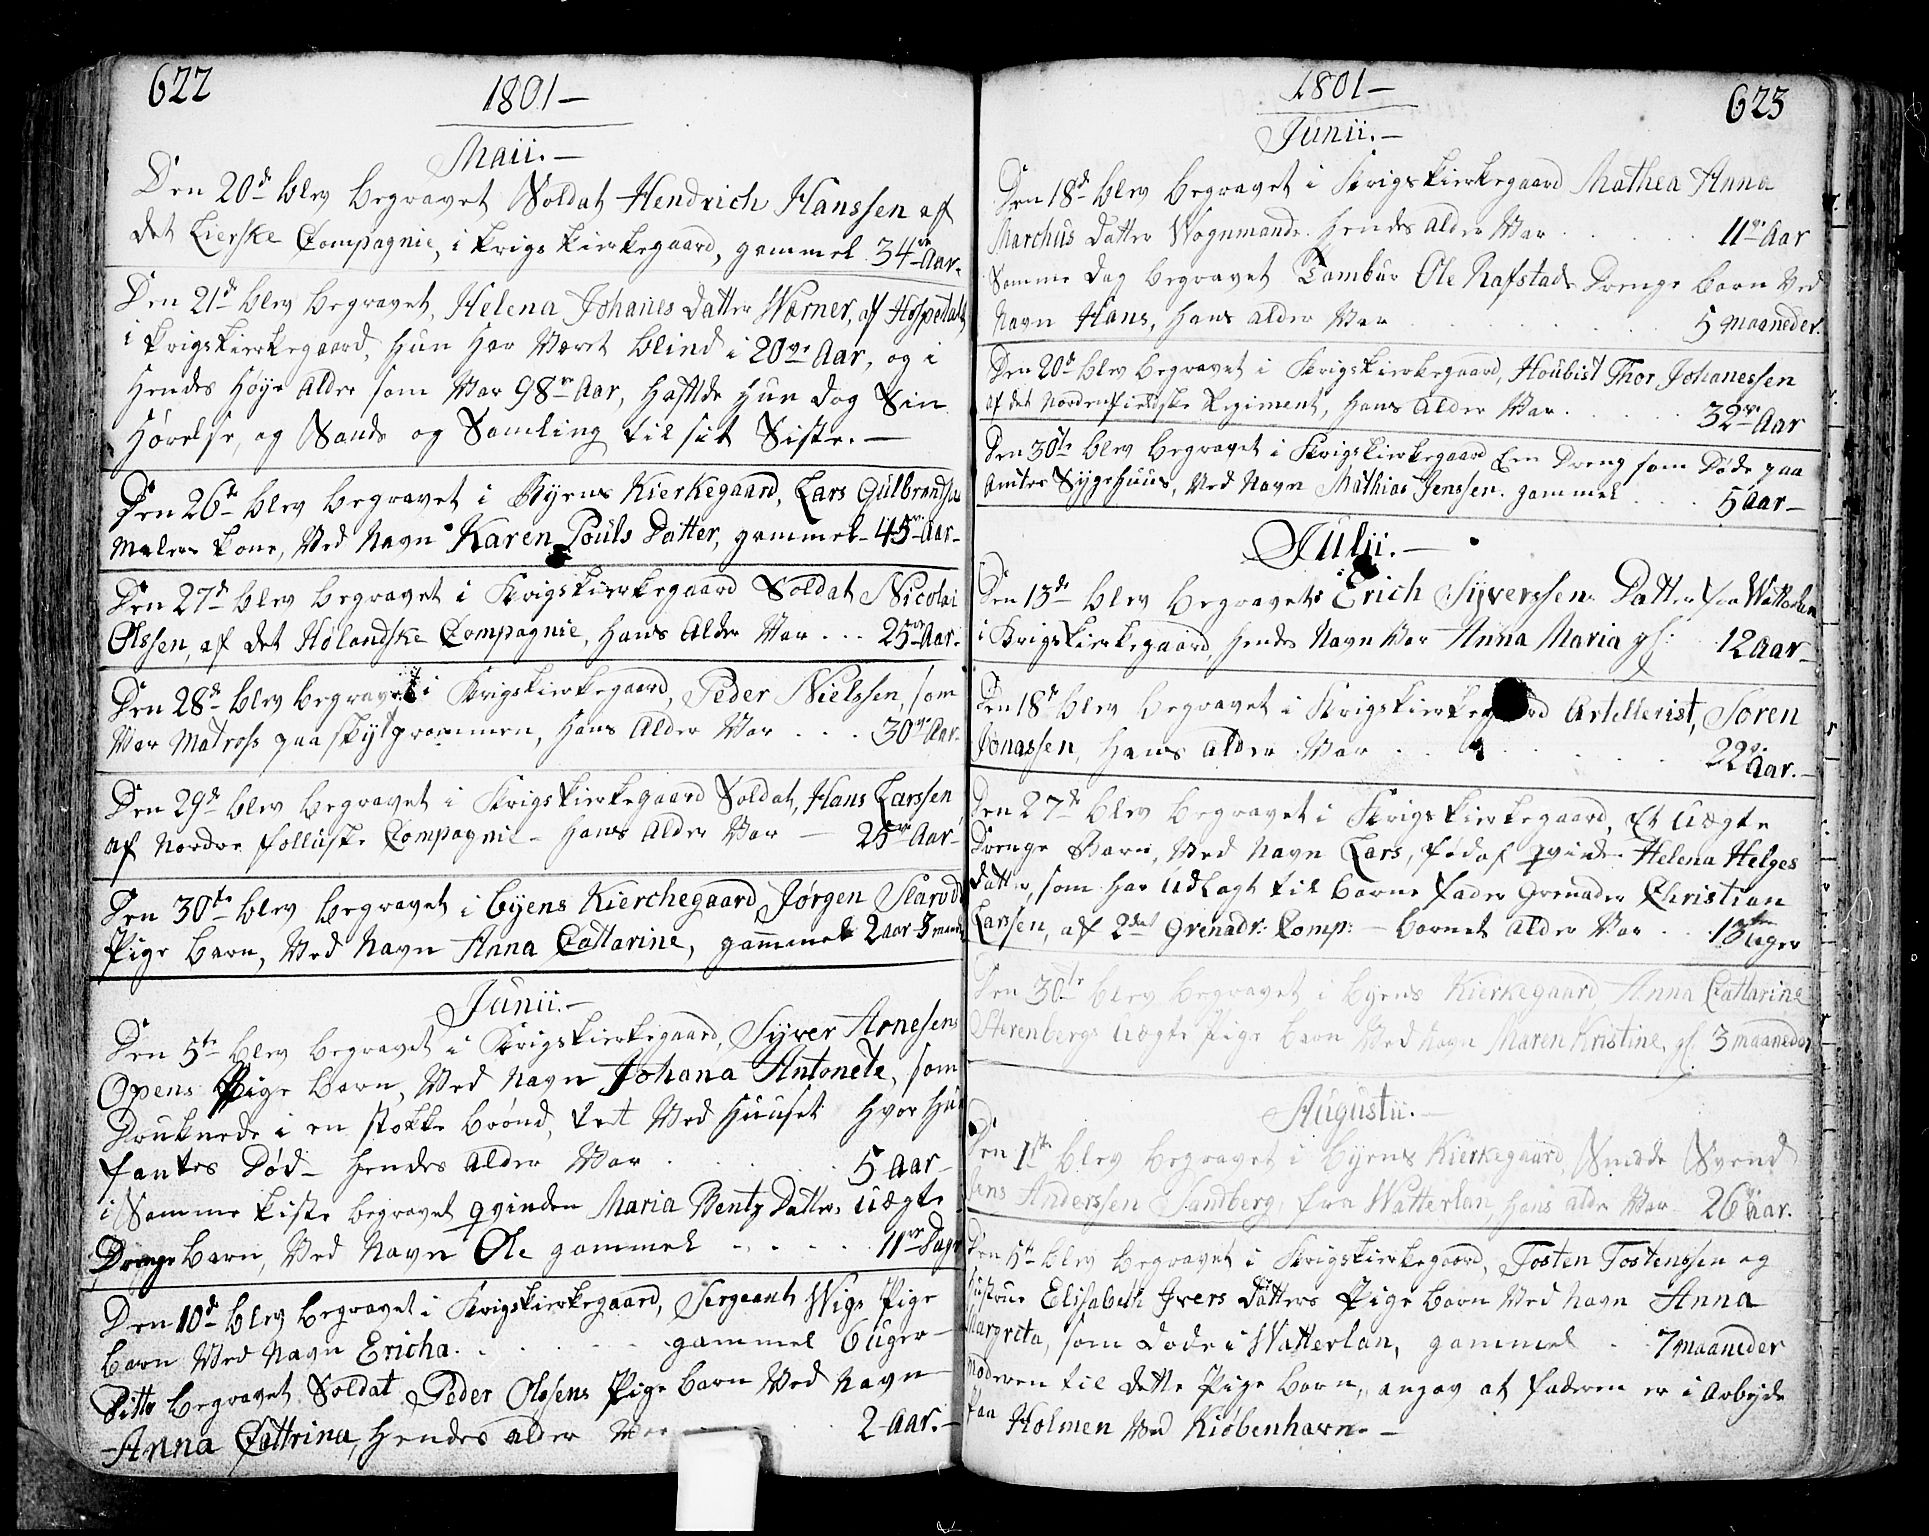 622
1801 —
Maii. —
Den 20de blev begravet Soldat Hendrich Hanssen af
det Lierske Compagnie, i Krigskierkegaard, gammel 34re Aar.
Den 21de blev begravet, Helena Johanes datter Wærner, af Hospetalet
i Krigskierkegaard, Hun har været blind i 20ve Aar, og i
hendes høye Alder som var 98ve Aar, hafde hun dog Sin
hørelse, og Sands og Samling til sit Siste. —
Den 26te blev begravet i Byens Kierkegaard, Lars Gulbrandsen
Malers Kone, ved Navn Karen Pouls Datter, gammel – 45re Aar –
Den 27de blev begravet i Krigskierkegaard Soldat Nicolai
Olssen, af det Hølandske Compagnie, hans Alder var . . . 25ve Aar.
Den 28de blev begravet i Krigskierkegaard, Peder Nielssen, som
var Matross paa skytprammen, hans Alder var . . . 30ve Aar.
Den 29de blev begravet i Krigskierkegaard Soldat, Hans Larssen
af Nordre folluske Compagnie – hans Alder var — 25ve Aar –
Den 30te blev begravet i Byens Kierchegaard Jørgen
Pige barn, ved Navn Anna Cattarine, gammel 2 aar 3 maan
Junii. —
Den 5te blev begravet i Krigskierkegaard, Syver Arnesens
Opens Pige barn, ved Navn Johana Antonete, som
Druknede i en stokke brønd, tet ved Huuset hvor hun
fantes død – hendes Alder var . . . 5 Aar –
i Samme Kiste begravet qvinden Maria Bentz Datters Uægte
Drenge barn, ved Navn Ole gammel . . . . 11ve Dage
Den 10de blev begravet i Krigskierkegaard, Sergeant Wigs Pige
barn ved Navn Ericha. . . . . . gammel 6 uger –
Ditto begravet Soldat Peder Olssens Pige barn ved Navn
Anna Cattrina, hendes alder var . . . 2 Aar. –
1801 —
623
Junii. —
Den 18de blev begravet i Krigskierkegaard Mathea Anna
Marchus datter Wognmands. hendes alder var . . . . 11ve Aar
Samme dag begravet Tambur Ole Rafstads Drenge barn ved
Navn Hans, hans alder var . . . . . . 5 maaneder.
Den 20de blev begravet i Krigskierkegaard, Houbist Thor Johanessen
af det Nordenfieldske Regiment, hans Alder var . . . . 32ve Aar
Den 30te blev begravet i Krigskierkegaard Een Dreng som døde paa
Amtes Sygehuus, ved Navn Mathias Jenssen. gammel . . . 5 Aar –
Julii. —
Den 13de blev begravet Erich Syverssens Datter fra Watterlan
i Krigskierkegaard, hendes Navn var Anna Maria gl: 12 Aar –
Den 18de blev begravet i Krigskierkegaard Artellerist, Søren
Jonassen, hans alder var . . . . . . 22ve Aar. –
Den 27de blev begravet i Krigskierkegaard, Et Uægte
Drenge Barn, ved Navn Lars, fød af qvinde Helena Helges
datter, som har Udlagt til barne fader Grenader Christian
Larssen, af 2det Grenadr: Comp: — barnet alder var . . 13ten uger
Den 30te blev begravet i Byens Kierkegaard Anna Cattarine
Sterenbergs Uægte Pige barn ved Navn Maren Kristine, gl. 3 maaneder
Augustii. —
Den 1ste blev begravet i Byens Kierkegaard, Smede Svend
sens Anderssen Sandberg, fra Watterlan, hans alder var 26ve Aar.
Den 5te blev begravet i Krigskierkegaard, Tosten Tostenssen og
hustrue Elisabeth Ivers Datters Pige barn ved Navn Anna
Margreta, som døde i Watterlan, gammel . . 7 maaneder
moderen til dette Pige barn, angav at faderen er i Arbeyde
paa Holmen ved Kiøbenhavn. –